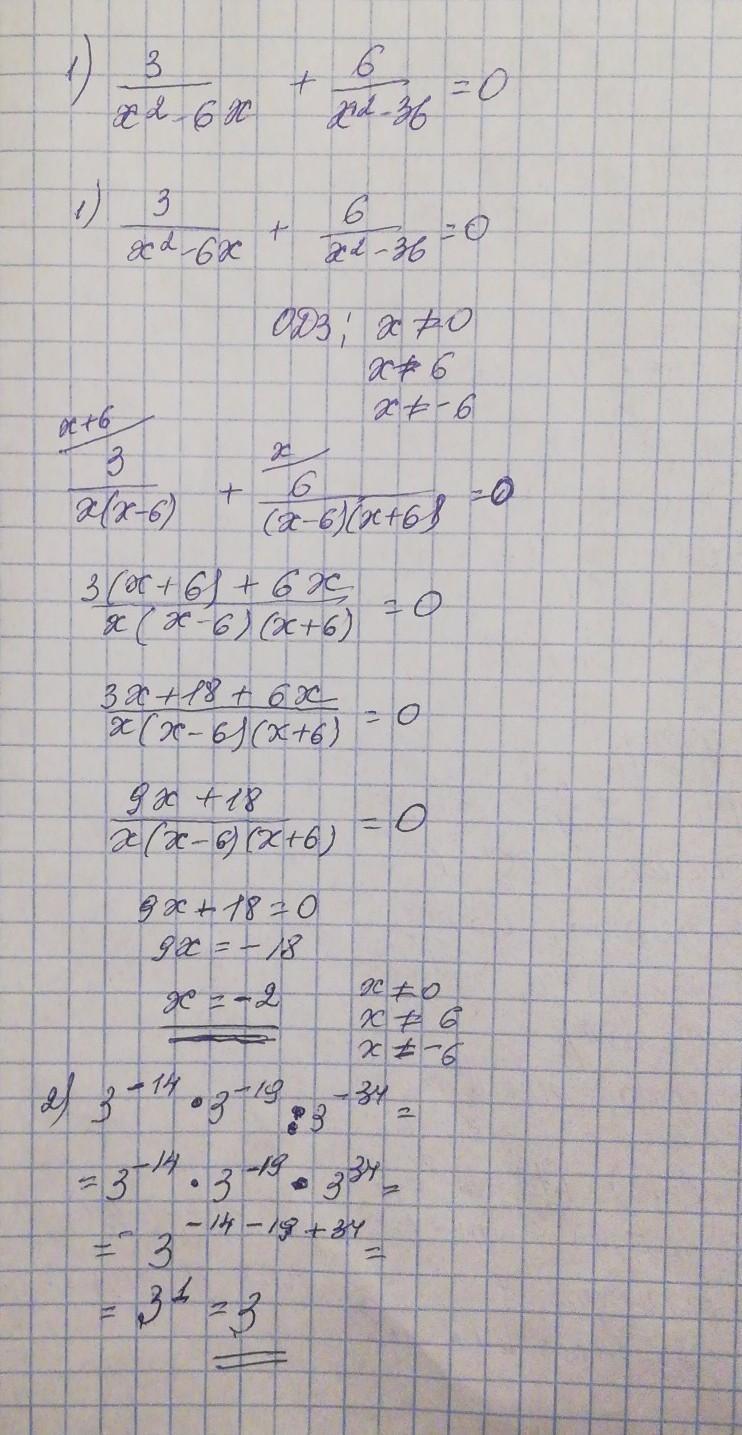 1) 3/(x²-6x) + 6/(x²-36) = 0
1) 3/(x²-6x) + 6/(x²-36) = 0
ОДЗ: x ≠ 0
x ≠ 6
x ≠ -6
x+6 x
3/(x(x-6)) + 6/((x-6)(x+6)) = 0
(3(x+6) + 6x)/(x(x-6)(x+6)) = 0
(3x+18+6x)/(x(x-6)(x+6)) = 0
(9x+18)/(x(x-6)(x+6)) = 0
9x+18=0
9x = -18
x = -2
x ≠ 0
x ≠ 6
x ≠ -6
2) 3⁻¹⁴ • 3⁻¹⁹ : 3⁻³⁴ =
= 3⁻¹⁴ • 3⁻¹⁹ • 3³⁴ =
= 3⁻¹⁴⁻¹⁹⁺³⁴ =
= 3¹ = 3